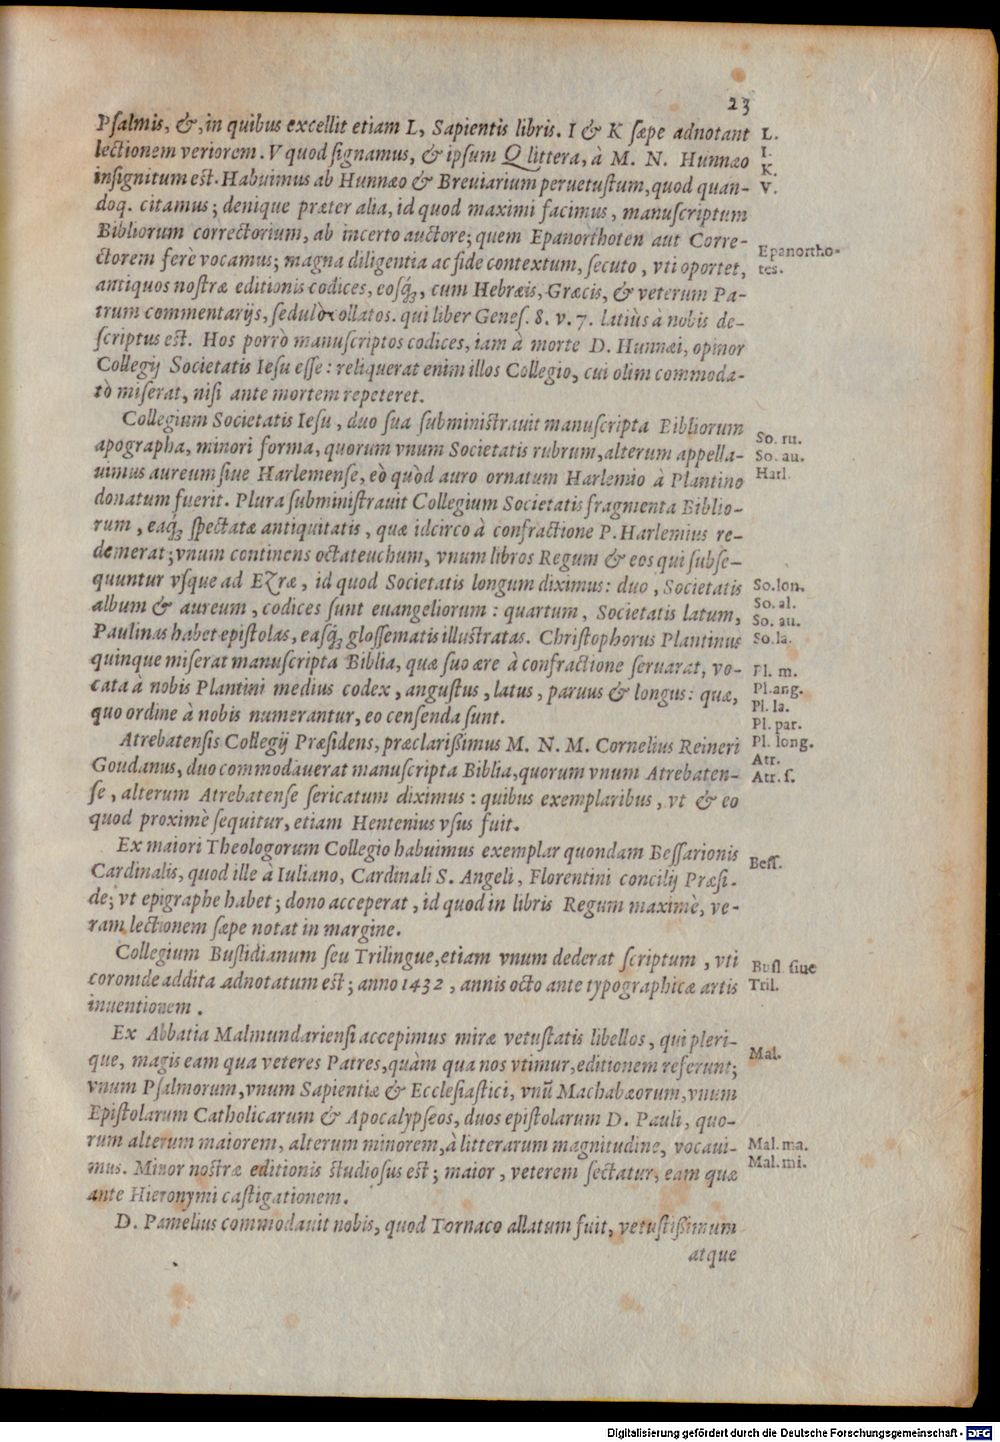 23
Psalmis, &, in quibus excellit etiam L, Sapientis libris. I & K sæpe adnotant
L.
lectionem veriorem. V quod signamus, & ipsum Q littera, à M. N. Hunnæo
I.
K.
insignitum est. Habuimus ab Hunnæo & Breviarium peruetustum, quod quan-
V.
doq. citamus; denique præter alia, id quod maximi facimus, manuscriptum
Bibliorum correctorium, ab incerto auctore; quem Epanorthoten aut Corre-
Epanortho-
ctorem ferè vocamus; magna diligentia ac fide contextum, secuto, vti oportet,
tes.
antiquos nostræ editionis codices, eosq́ꝫ, cum Hebræis, Græcis, & veterum Pa-
trum commentarijs, sedulò collatos. qui liber Genes. 8. v. 7. latiùs à nobis de-
scriptus est. Hos porrò manuscriptos codices, iam à morte D. Hunnæi, opinor
Collegij Societatis Iesu esse: reliquerat enim illos Collegio, cui olim commoda-
tò miserat, nisi ante mortem repeteret.
Collegium Societatis Iesu, duo sua subministrauit manuscripta Bibliorum
So. ru.
apographa, minori forma, quorum vnum Societatis rubrum, alterum appella-
So. au.
uimus aureum siue Harlemense, eò quòd auro ornatum Harlemio à Plantino
Harl.
donatum fuerit. Plura subministrauit Collegium Societatis fragmenta Biblio-
rum, eaq́ꝫ spectatæ antiquitatis, quæ idcirco à confractione P. Harlemius re-
demerat; vnum continens octateuchum, vnum libros Regum & eos qui subse-
quuntur vsque ad Ezræ, id quod Societatis longum diximus: duo, Societatis
So. lon.
album & aureum, codices sunt euangeliorum: quartum, Societatis latum,
So. al.
So. au.
Paulinas habet epistolas, easq́ꝫ glossematis illustratas. Christophorus Plantinus
So. la.
quinque miserat manuscripta Biblia, quæ suo ære à confractione seruarat, vo-
Pl. m.
cata à nobis Plantini medius codex, angustus, latus, paruus & longus: quæ,
Pl. ang.
Pl. la.
quo ordine à nobis numerantur, eo censenda sunt.
Pl. par.
Atrebatensis Collegij Præsidens, præclarißimus M. N. M. Cornelius Reineri
Pl. long.
Goudanus, duo commodauerat manuscripta Biblia, quorum vnum Atrebaten-
Atr.
Atr. s.
se, alterum Atrebatense sericatum diximus: quibus exemplaribus, vt & eo
quod proximè sequitur, etiam Hentenius vsus fuit.
Ex maiori Theologorum Collegio habuimus exemplar quondam Bessarionis
Bess.
Cardinalis, quod ille à Iuliano, Cardinali S. Angeli, Florentini concilij Præsi-
de; vt epigraphe habet; dono acceperat, id quod in libris Regum maximè, ve-
ram lectionem sæpe notat in margine.
Collegium Buslidianum seu Trilingue, etiam vnum dederat scriptum, vti
Busl. siue
coronide addita adnotatum est; anno 1432, annis octo ante typographicæ artis
Tril.
inuentionem.
Ex Abbatia Malmundariensi accepimus miræ vetustatis libellos, qui pleri-
Mal.
que, magis eam qua veteres Patres, quàm qua nos vtimur, editionem referunt;
vnum Psalmorum, vnum Sapientiæ & Ecclesiastici, vnū Machabæorum, vnum
Epistolarum Catholicarum & Apocalypseos, duos epistolarum D. Pauli, quo-
rum alterum maiorem, alterum minorem, à litterarum magnitudine, vocaui-
Mal. ma.
mus. Minor nostræ editionis studiosus est; maior, veterem sectatur, eam quæ
Mal. mi.
ante Hieronymi castigationem.
D. Pamelius commodauit nobis, quod Tornaco allatum fuit, vetustißimum
atque
Digitalisierung gefördert durch die Deutsche Forschungsgemeinschaft - DFG